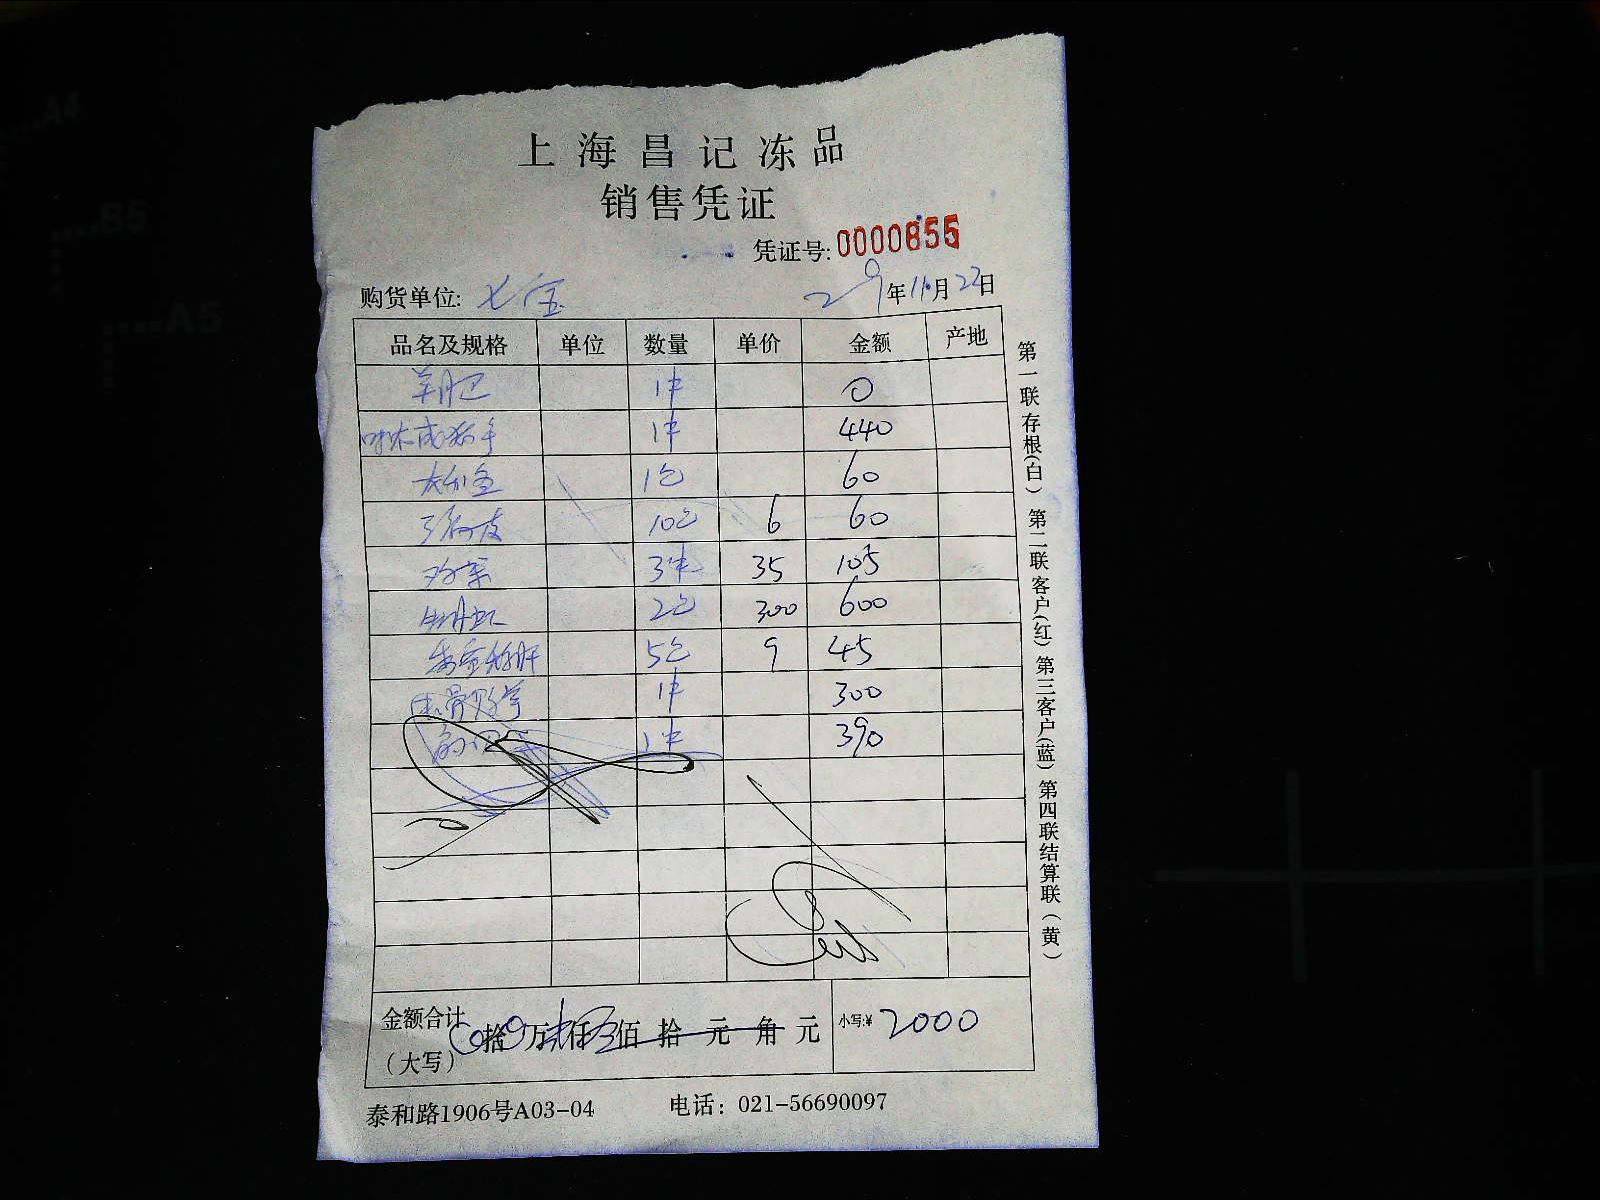 上海昌记冻品
销售凭证
凭证号:0000855
购货单位: 七宝 29年11月22日
品名及规格 单位 数量 单价 金额 产地
1件 0
1件 440
1包 60
10包 6 60
3件 35 105
2包 300 600
5包 9 45
1件 300
1件 390
金额合计(大写) 拾 万 仟 佰 拾 元 角 元 小写:¥ 2000
泰和路1906号A03-04 电话：021-56690097
第一联存根(白) 第二联客户(红) 第三客户(蓝) 第四联结算联(黄)
A4
B5
A5